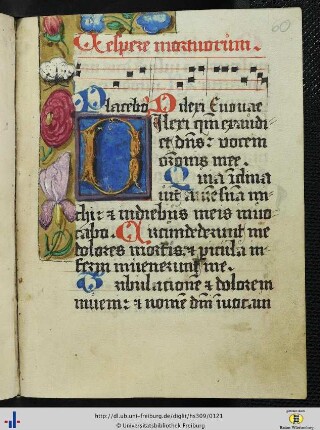 60
Vespere mortuorum.
Placebo Dilexi Euouae
Dilexi qm̄ exaudi
et dn̄s: vocem
orōnis mee.
Quia īclina
uit aurē suā mi
chi: et in diebus meis īuo
cabo. Circumdederunt me
dolores mortis, et picula in
ferni inuenerunt me.
Tribulationē et dolorem
inueni: et nomē dn̄i īuocaui
http://dl.ub.uni-freiburg.de/diglit/hs309/0121
© Universitätsbibliothek Freiburg
Baden-Württemberg